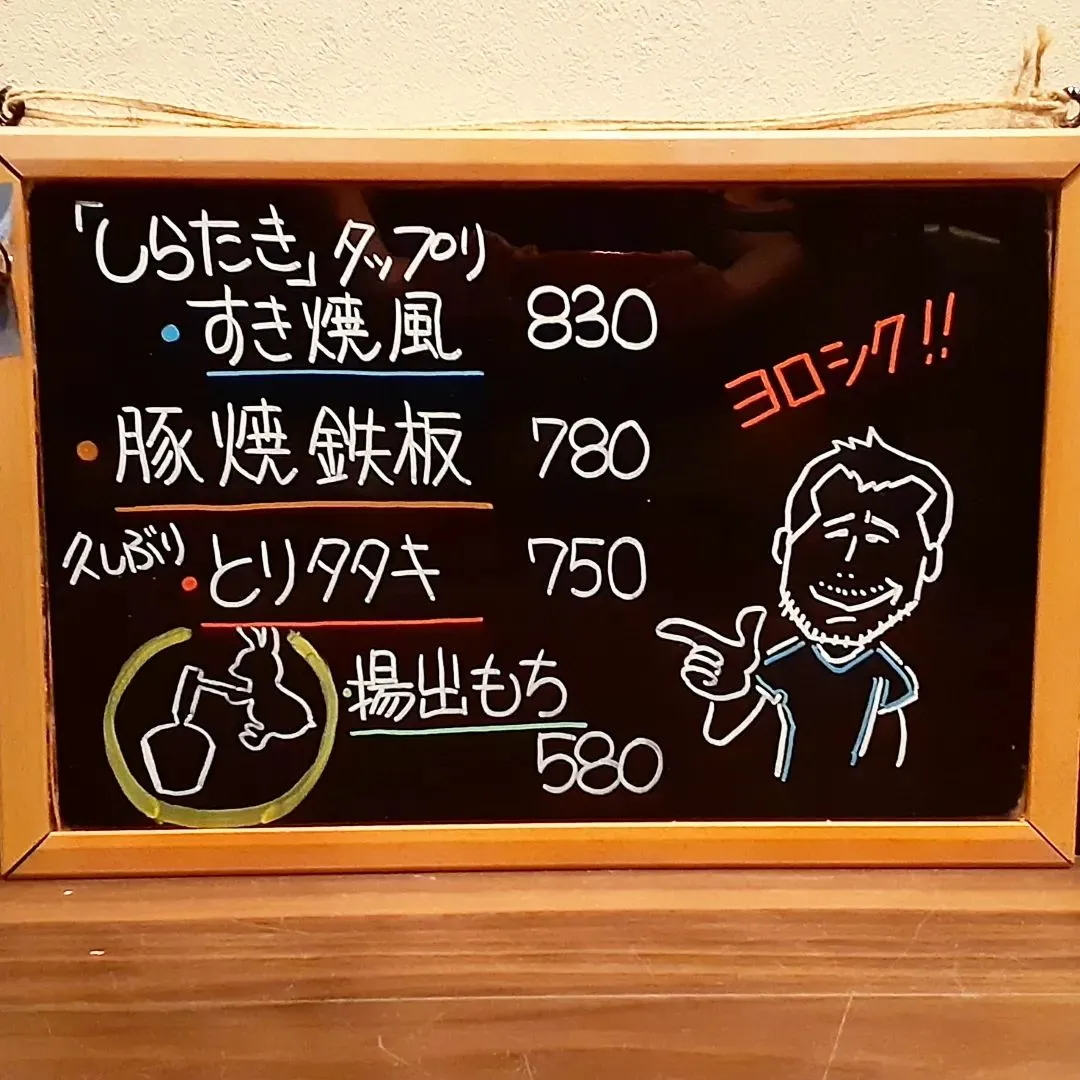 「しらたき」タップリ
・すき焼風 830
・豚焼鉄板 780
久しぶり・とりタタキ 750
・揚出もち
580
ヨロシク!!